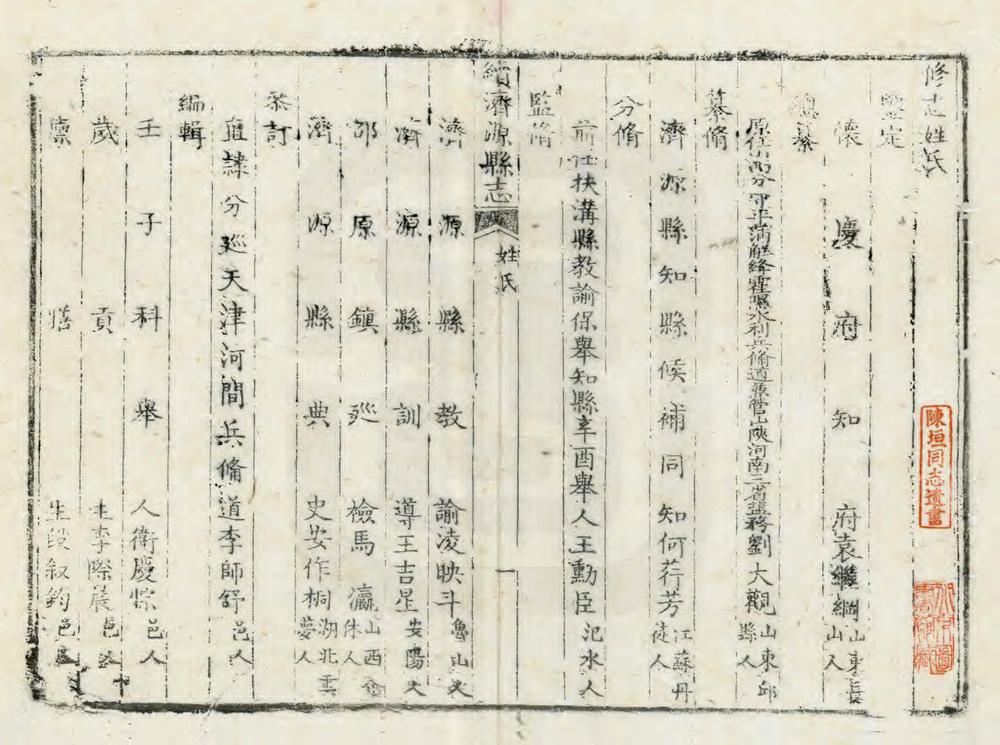 修志姓氏
鑒定
懷慶府知府袁繼綱山東長山人
總纂
原任山西分守平蒲解絳霍隰水利兵備道兼管山陝河南三省鹽務劉大觀山東邱縣人
纂脩
濟源縣知縣候補同知何荇芳江蘇丹徒人
分脩
前任扶溝縣教諭保舉知縣辛酉舉人王勳臣汜水人
監脩
續濟源縣志
姓氏
一
濟源縣教諭淩映斗魯山人
濟源縣訓導王吉星安陽人
邵原鎮廵檢馬瀛山西人
濟源縣典史安作桐湖北雲夢人
叅訂
直隸分廵天津河間兵脩道李師舒邑人
編輯
壬子科舉人衛慶悰邑人
歲貢生李際晨邑人
廩膳生段叙鈞邑人
陳垣同志遺書